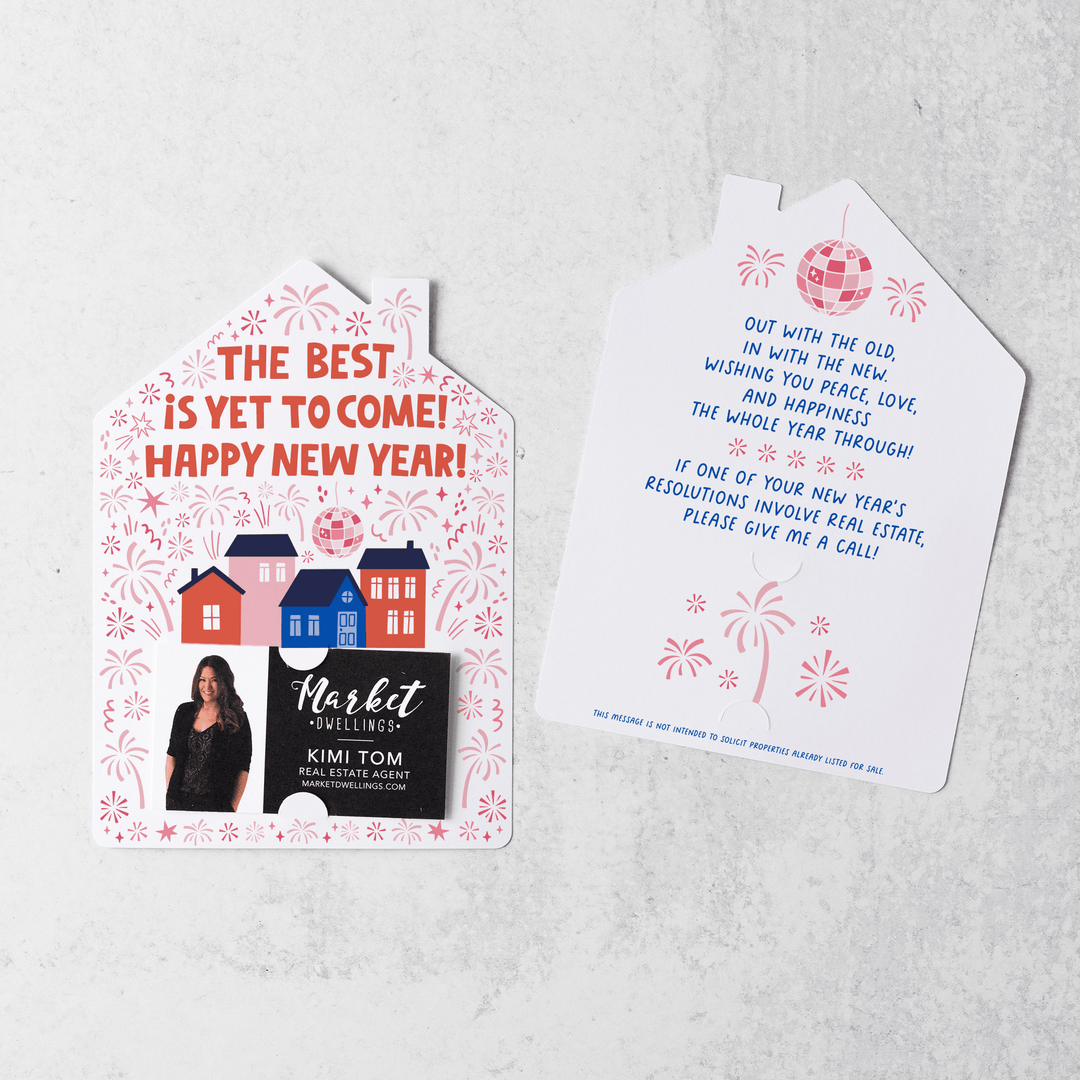 THE BEST
iS YET TO COME!
HAPPY NEW YEAR!
Market
•DWELLINGS•
KIMI TOM
REAL ESTATE AGENT
MARKETDWELLINGS.COM
OUT WITH THE OLD,
IN WITH THE NEW.
WISHING YOU PEACE, LOVE,
AND HAPPINESS
THE WHOLE YEAR THROUGH!
IF ONE OF YOUR NEW YEAR'S
RESOLUTIONS INVOLVE REAL ESTATE,
PLEASE GIVE ME A CALL!
THIS MESSAGE IS NOT INTENDED TO SOLICIT PROPERTIES ALREADY LISTED FOR SALE.